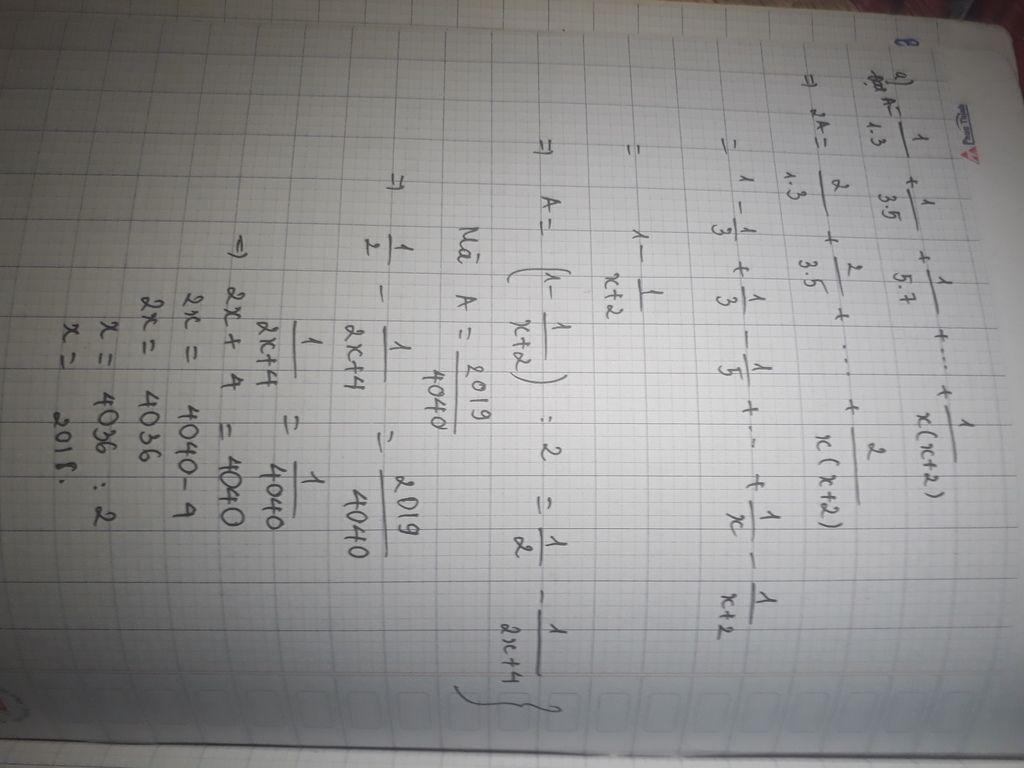 8
a) Đặt A = 1/1.3 + 1/3.5 + 1/5.7 + ... + 1/x(x+2)
=> 2A = 2/1.3 + 2/3.5 + ... + 2/x(x+2)
= 1 - 1/3 + 1/3 - 1/5 + ... + 1/x - 1/x+2
= 1 - 1/x+2
=> A = (1 - 1/x+2) : 2 = 1/2 - 1/2x+4 }
Mà A = 2019/4040
=> 1/2 - 1/2x+4 = 2019/4040
1/2x+4 = 1/4040
=> 2x + 4 = 4040
2x = 4040 - 4
2x = 4036
x = 4036 : 2
x = 2018.